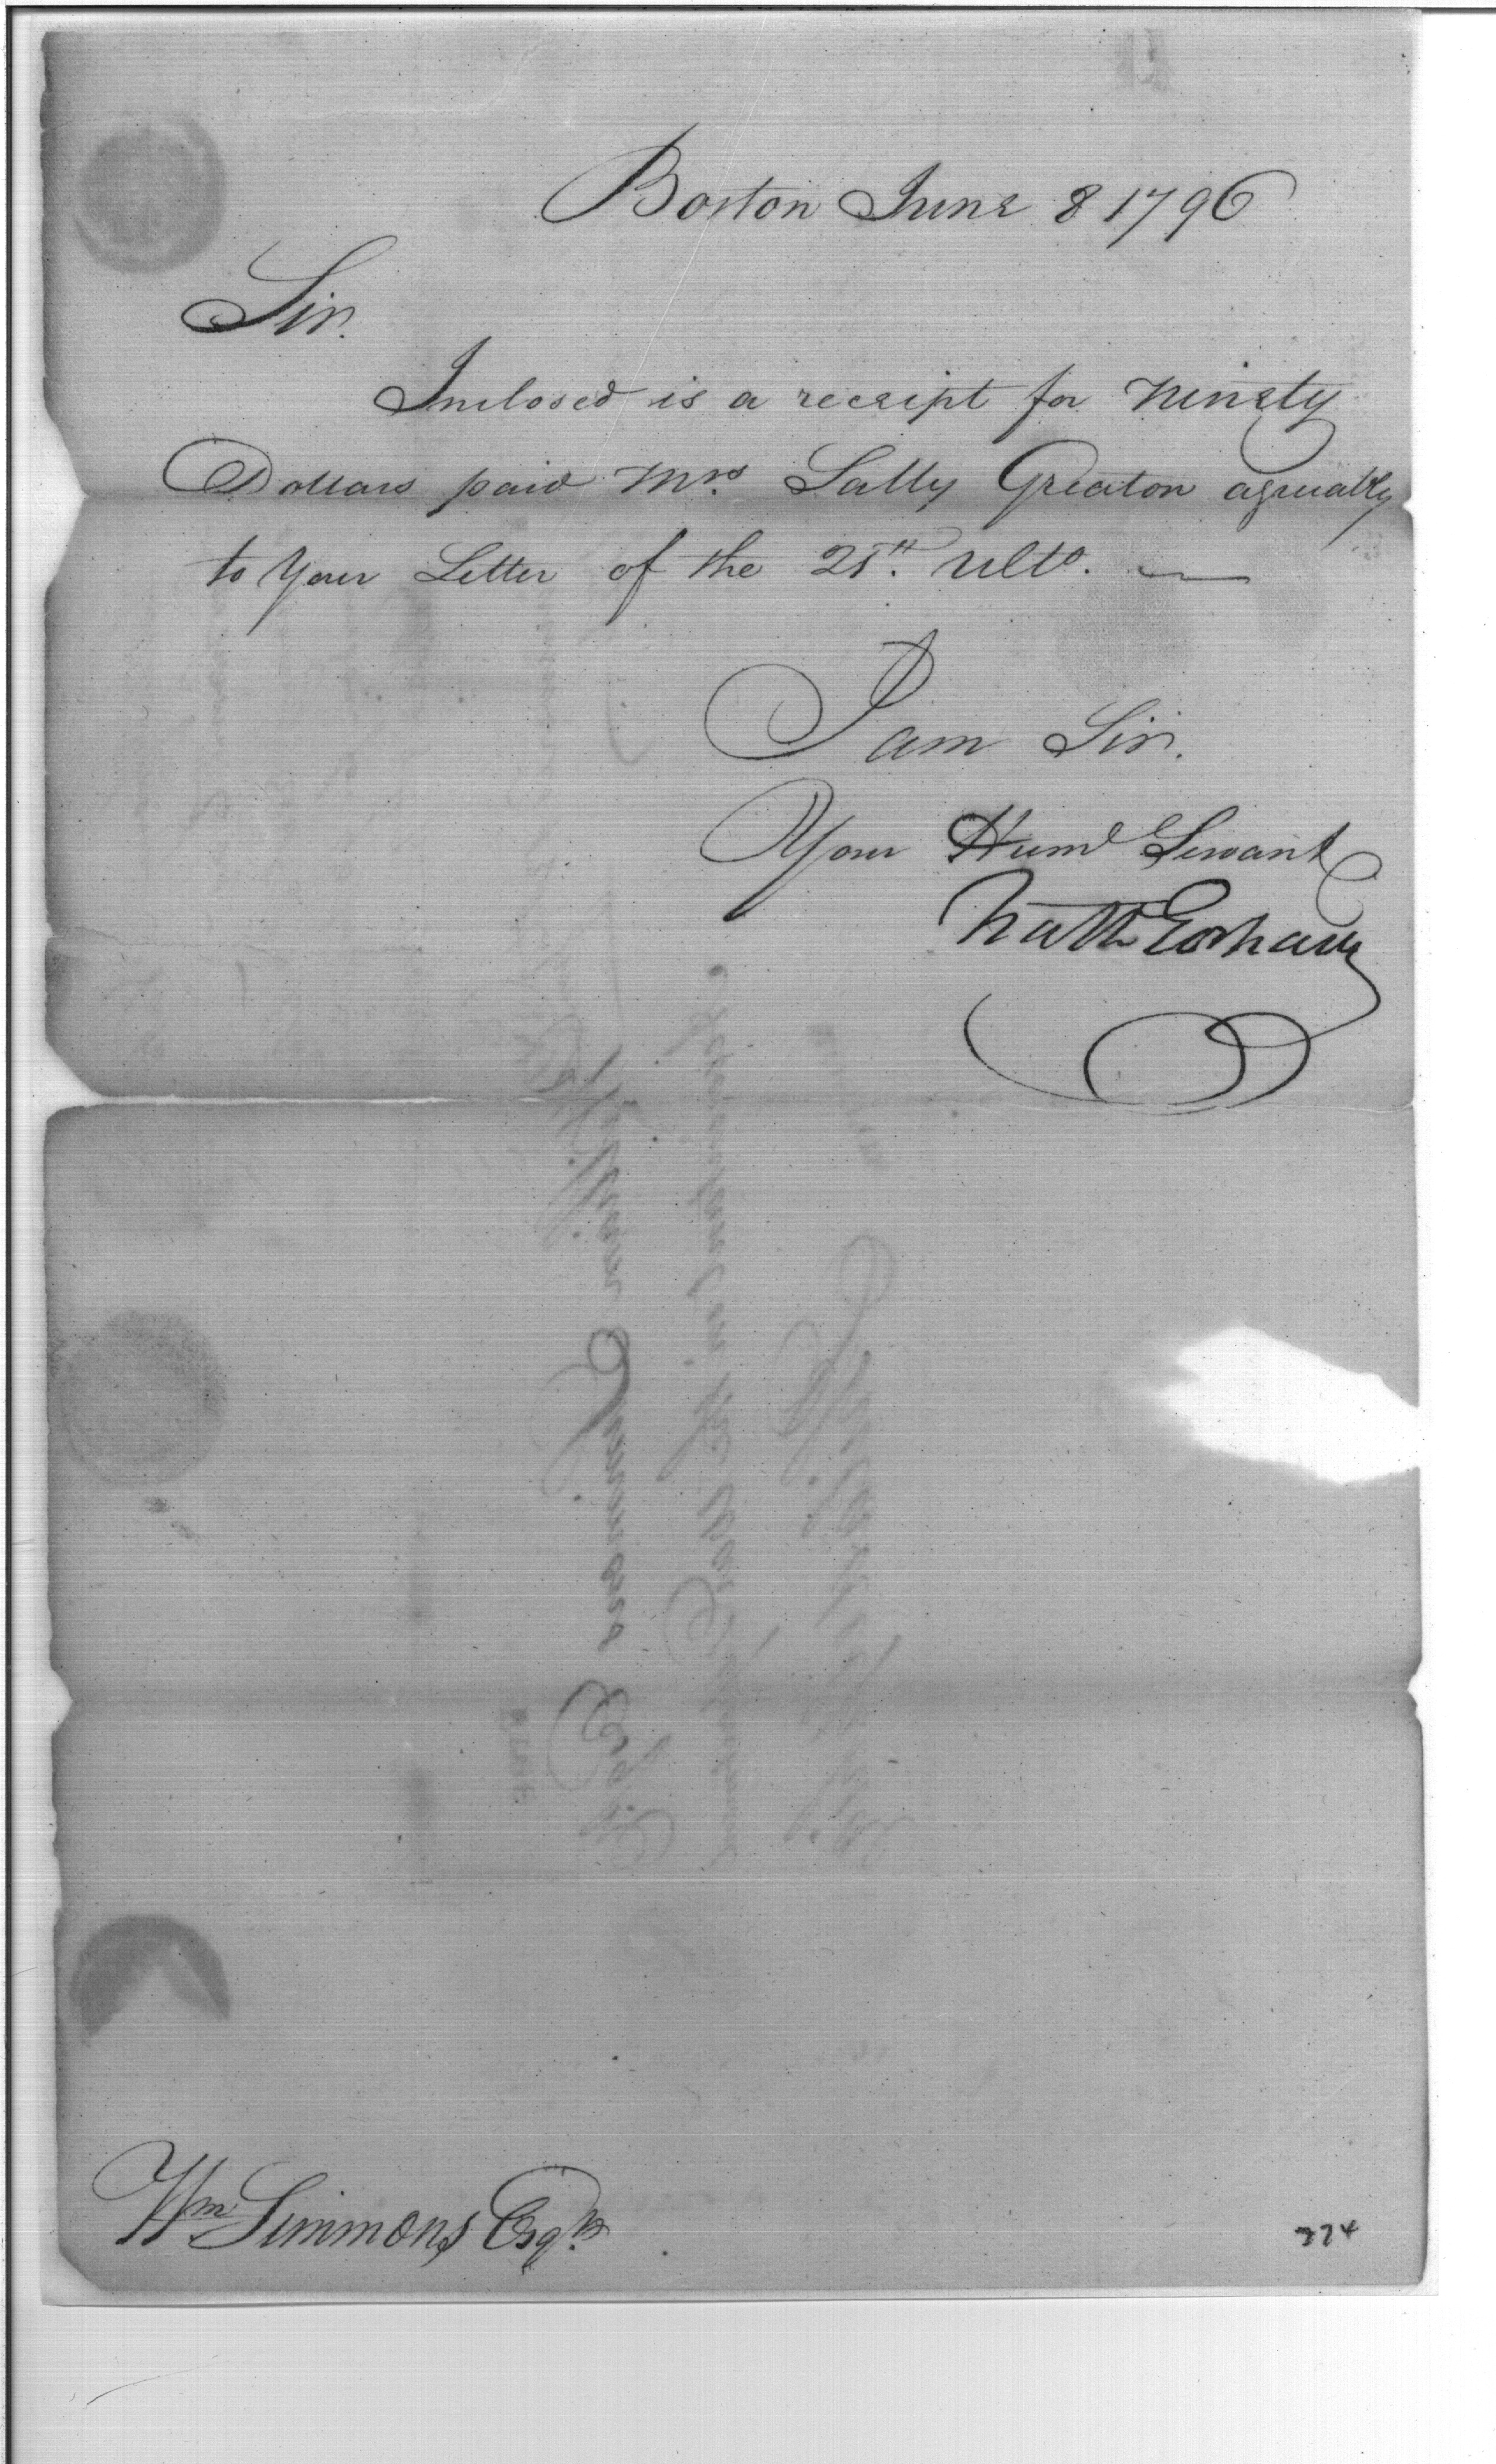 Boston June 8 1796
Sir.
Inclosed is a receipt for Ninety
Dollars paid Mrs. Sally Greaton agreeably
to Your Letter of the 25th. Ulto.
I am Sir.
Your Huml Servant
Nath Gorham
Wm Simmons Esqr.
374